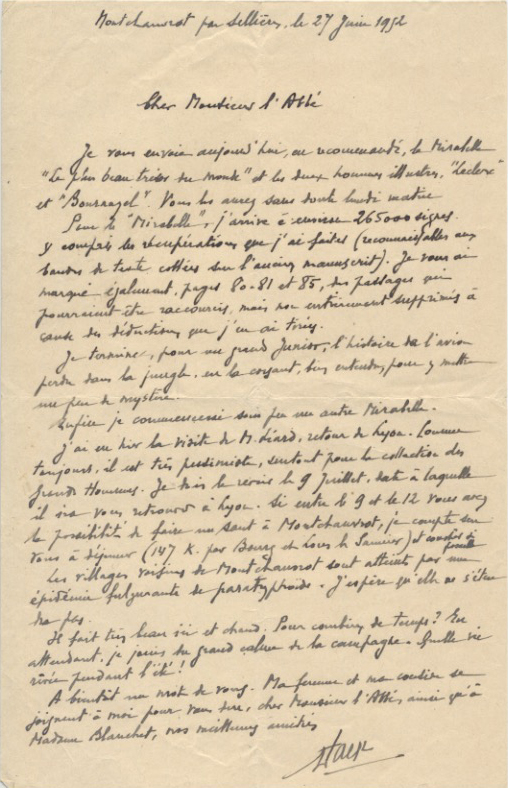 Montchauvrot par Sellières, le 27 Juin 1952
Cher Monsieur l'Abbé
Je vous envoie aujourd'hui, en recommandé, le Mirabelle
"Le plus beau trésor du monde" et les deux hommes illustres, "Leclerc"
et "Bournazel". Vous les aurez sans doute lundi matin
Pour le "Mirabelle", j'arrive à environ 265000 signes.
y compris les récupérations que j'ai faites (reconnaissables aux
bandes de texte collées sur l'ancien manuscrit). Je vous ai
marqué également, pages 80-81 et 85, des passages qui
pourraient être raccourcis, mais non entièrement supprimés à
cause des déductions que j'en ai tirées.
Je termine, pour un grand Junior, l'histoire de l'avion
perdu dans la jungle, en la corsant, bien entendu, pour y mettre
un peu de mystère.
Enfin je commencerai sous peu un autre Mirabelle.
J'ai eu hier la visite de M. retour de Lyon. Comme
toujours, il est très pessimiste, surtout pour la collection des
Grands Hommes. Je dois le revoir le 9 Juillet, date à laquelle
il ira vous retrouver à Lyon. Si entre le 9 et le 12 vous avez
la possibilité de faire un saut à Montchauvrot, je compte sur
vous à déjeuner (147 K. par Bourg et Lons le Saunier) et coucher si possible
Les villages voisins de Montchauvrot sont atteints par une
épidémie fulgurante de paratyphoïde. J'espère qu'elle ne s'étendra pas.
Il fait très beau ici et chaud. Pour combien de temps? En
attendant, je jouis du grand calme de la campagne. Quelle vie
rêvée pendant l'été!
A bientôt un mot de vous. Ma femme et ma cousine se
joignent à moi pour vous dire, cher Monsieur l'Abbé, ainsi qu'à
Madame Blanchet, nos meilleures amitiés